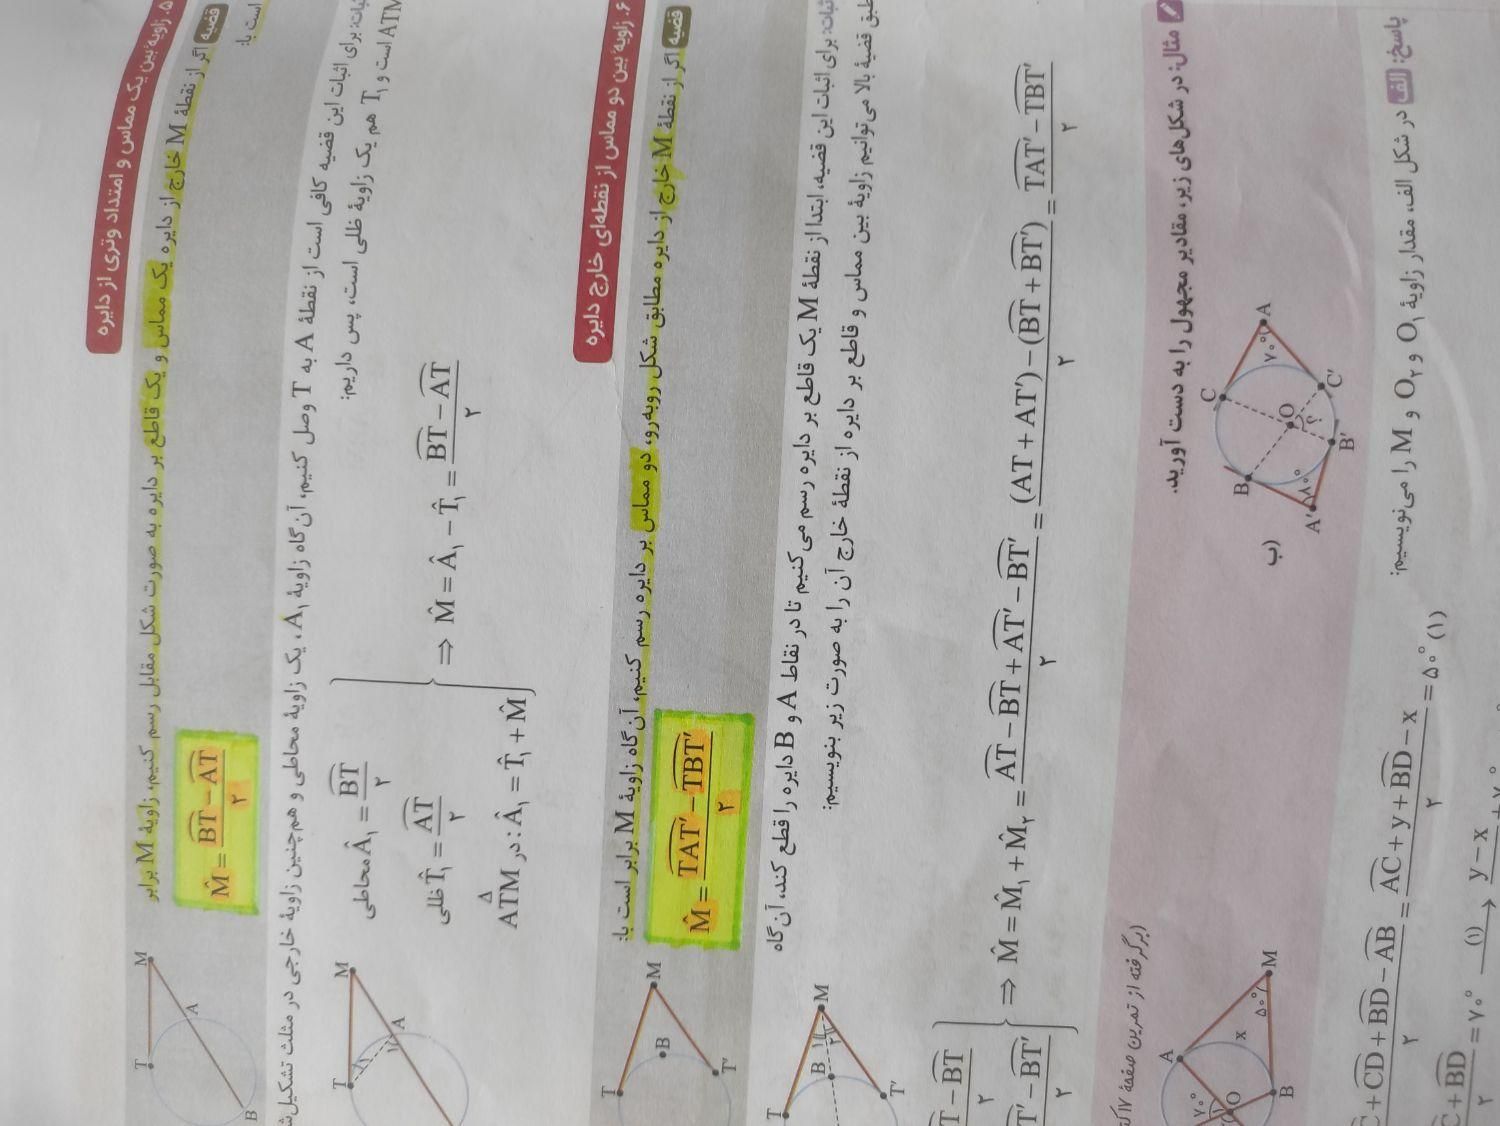 ۵. زاویهٔ بین یک مماس و امتداد وتری از دایره
قضیه اگر از نقطهٔ M خارج از دایره یک مماس و یک قاطع بر دایره به صورت شکل مقابل رسم کنیم، زاویهٔ M برابر
است با:
M̂ = (BT - AT) / ۲
T
M
A
B
اثبات: برای اثبات این قضیه کافی است از نقطهٔ A به T وصل کنیم، آن‌گاه زاویهٔ A₁، یک زاویهٔ محاطی و هم‌چنین زاویهٔ خارجی در مثلث
ATM است و T₁ هم یک زاویهٔ ظلی است، پس داریم:
محاطی Â₁ = BT / ۲
ظلی T̂₁ = AT / ۲
در ATM : Â₁ = T̂₁ + M̂
⇒ M̂ = Â₁ - T̂₁ = (BT - AT) / ۲
T
M
A
۶. زاویهٔ بین دو مماس از نقطه‌ای خارج دایره
قضیه اگر از نقطهٔ M خارج از دایره مطابق شکل روبه‌رو، دو مماس بر دایره رسم کنیم، آن‌گاه زاویهٔ M برابر است با:
M̂ = (TAT′ - TBT′) / ۲
T
M
B
T′
اثبات: برای اثبات این قضیه، ابتدا از نقطهٔ M یک قاطع بر دایره رسم می‌کنیم تا در نقاط A و B دایره را قطع کند، آن‌گاه
طبق قضیهٔ بالا می‌توانیم زاویهٔ بین مماس و قاطع بر دایره از نقطهٔ خارج آن را به صورت زیر بنویسیم:
T
B
M
T′
T - BT / ۲
T′ - BT′ / ۲
⇒ M̂ = M̂₁ + M̂₂ = (AT - BT + AT′ - BT′) / ۲ = ((AT + AT′) - (BT + BT′)) / ۲ = (TAT′ - TBT′) / ۲
مثال: در شکل‌های زیر، مقادیر مجهول را به دست آورید.
(برگرفته از تمرین صفحهٔ ۱۷
ب)
A
۷۰°
C
C′
O
؟
B
B′
A′
۸۰°
A
M
۵۰°
x
B
O
۷۰°
پاسخ: الف در شکل الف، مقدار زاویهٔ O₁ و O₂ و M را می‌نویسیم:
C + CD + BD - AB / ۲ = (AC + y + BD - x) / ۲ = ۵۰° (۱)
C + BD / ۲ = ۷۰° (۱)→ y - x